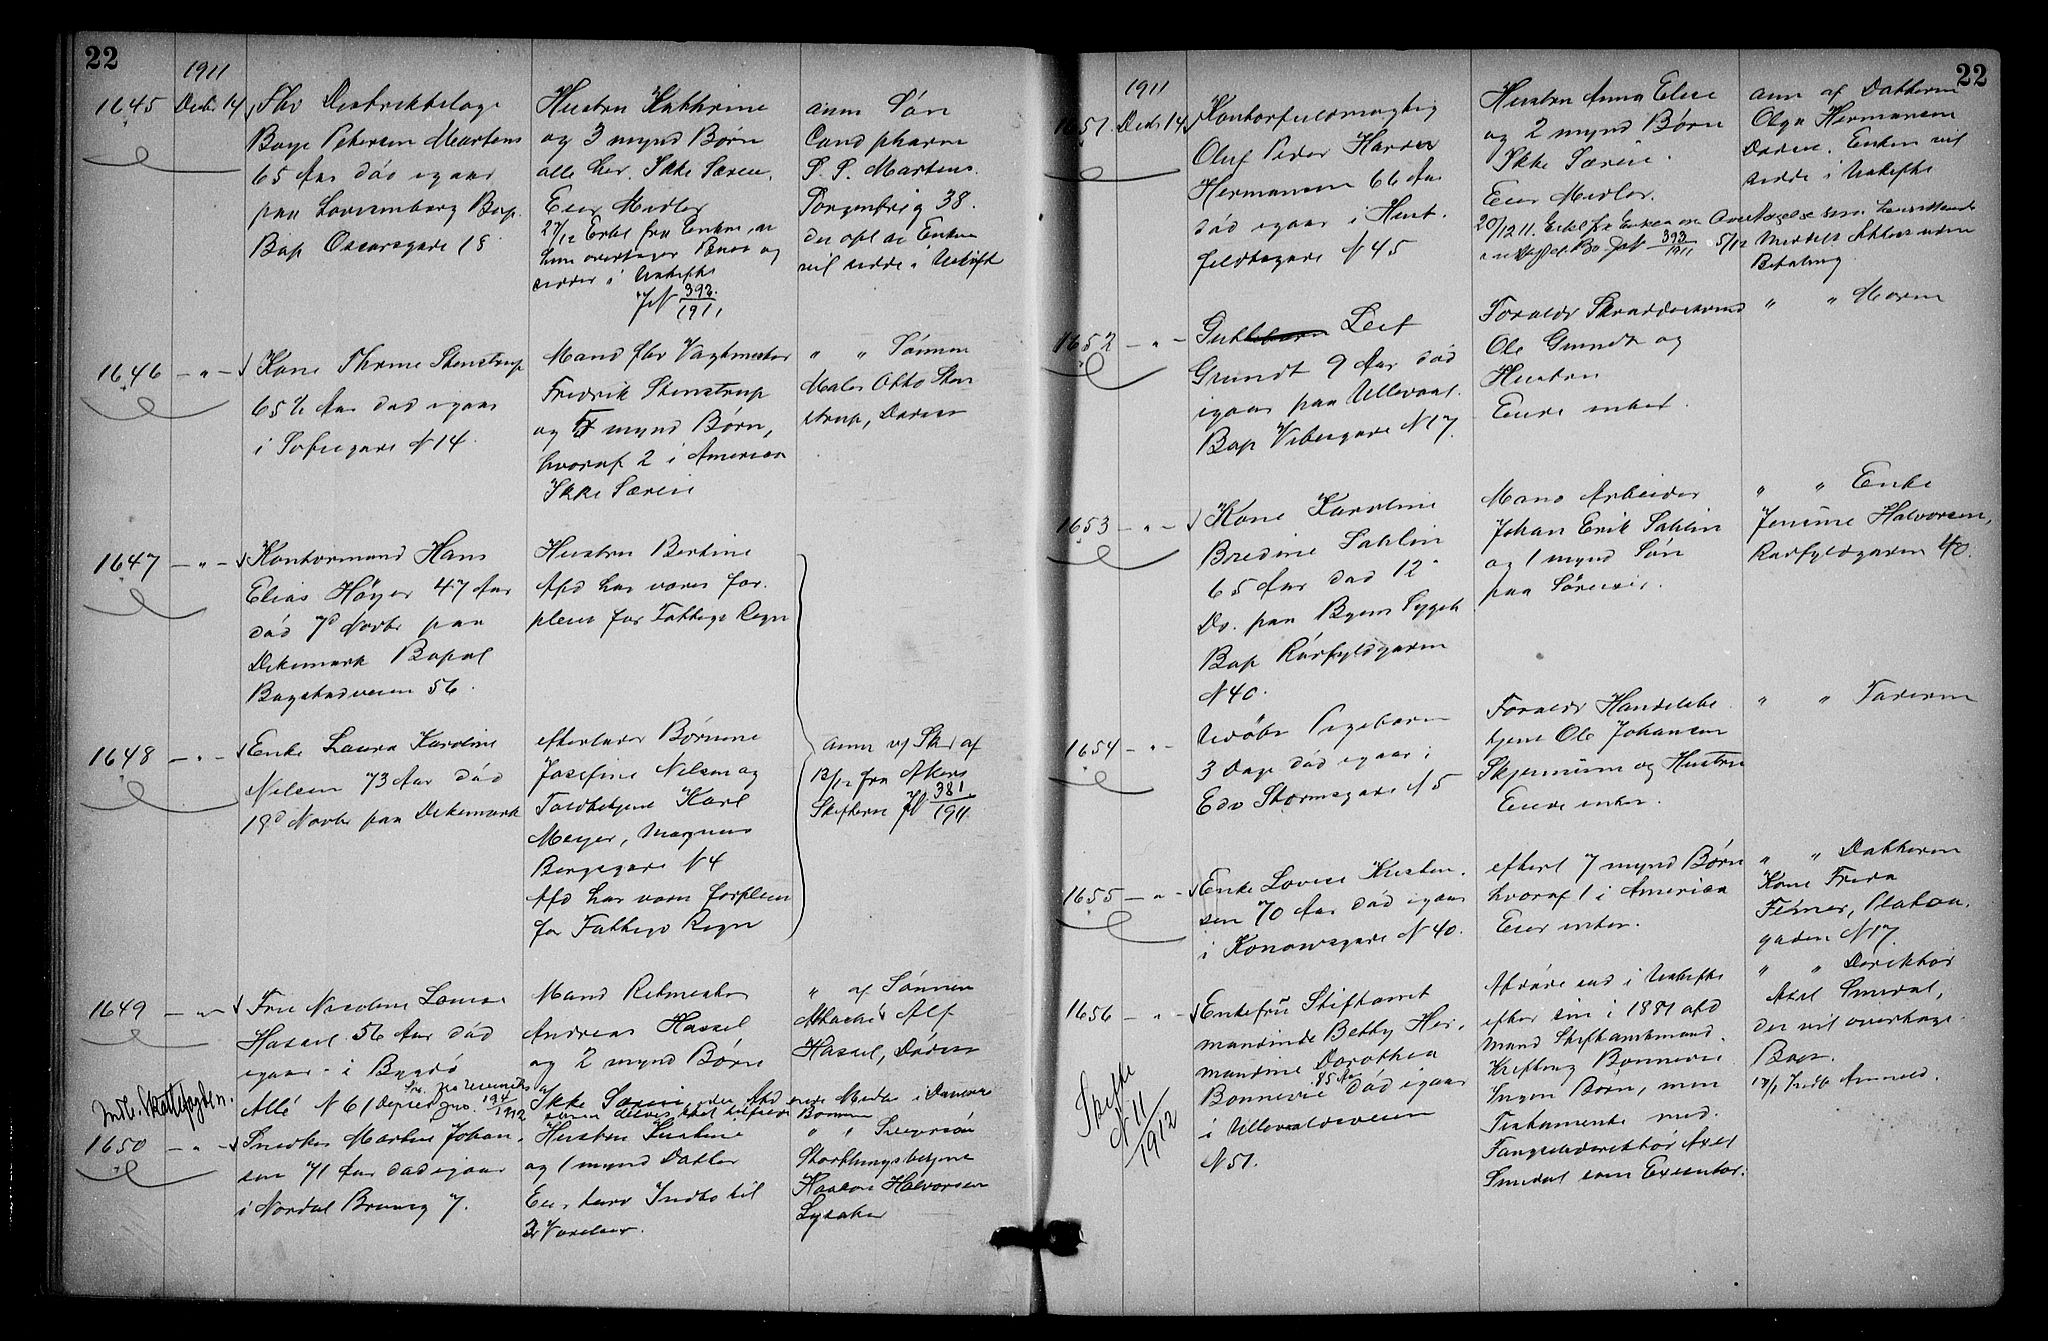 22
1911
1645 Decbr 14
Fhv Distriktslæge
Boye Petersen Martens
65 Aar død igaar
paa Lovisenberg Bop.
Bop Oscarsgade 18
Hustru Kathrine
og 3 mynd Børn
alle her. Ikke Særeie.
Eier Midler
27/12 Erkl fra Enken, at
hun overtager Boet og
sidder i Uskifte
JN 393/1911
anm Søn
Cand pharm
P. S. Martens
38.
der opl at Enken
vil sidde i Uskifte
1646 — " —
Kone Thrine Stenstrup
65 1/2 Aar død igaar
i Sofiesgade N 14.
Mand fhv Vagtmester
Fredrik Stenstrup
og mynd Børn,
hvoraf 2 i Amerika
Ikke Særeie
" " Sønnen
Maler Otto Sten
strup,
1647 — " —
Kontormand Hans
Elias Høyer 47 Aar
død 7d Novbr paa
Dikemark Bopæl
Bogstadveien 56.
Hustru Bertine
Afd har været for.
pleiet for Fattigv Regn
1648 — " —
Enke Laura Karoline
Nelsen 73 Aar død
19d Novbr paa Dikemark
efterlader Børnene
Josefine Nilsen og
Toldbetjent Karl
Meyer, Magnus
Bergsgade N 4
Afd har været forpleiet
for Fattigv Regn
anm vf Skr af
12/12 fra Akers
Skifteret JN 381/1911
1649 — " —
Frue Nicoline Lovise
Hassel 56 Aar død
igaar i Bygdø
Allé N 61
Mand Ritmester
Andreas Hassel
og 2 mynd Børn
Ikke Særeie
" af Sønnen
Attaché Alf
Hassel,
Indb. Skattefogden.
1650 — " —
Snedker Martin Johan.
sen 71 Aar død igaar
i Nordal Brunsg 7.
Hustru
og 1 mynd Datter
Eier kun Indbo til
2 Værelser.
" " Svigersøn
Storthingsbetjent
Haakon Halvorsen
Lysaker
22
1911
1651. Decbr 14
Kontorfuldmægtig
Oluf Peder Harder
Hermansen 66 Aar
død igaar i Huit.
feldtsgade N 45
Hustru Anna Elise
og 2 mynd Børn
Ikke Særeie.
Eier Midler.
20/12 11. Erkl fra Enken om Overtagelse
JN 393/1911
anm af Datteren
Olga Hermansen
Enken vil
sidde i Uskifte
Betaling
1652 — " —
Leif
Grundt 9 Aar død
igaar paa Ullevaal.
Bop Vibesgade N 17.
Foræld
Ole Grundt og
Hustru
Eiede intet.
" " Moren
1653 — " —
Kone Karoline
Bredine Sahlin
65 Aar død 12
Ds. paa Byens Sygeh
Bop Rørfyldgaden
N 40.
Mand Arbeider
Johan Erik Sahlin
og 1 mynd Søn
paa Søreiser.
" " Enke
Jensine Halvorsen,
Rørfyldgaden 40.
1654 — " —
Udøbt Pigebarn
3 Dage død igaar i
Edv Stormsgade N 5
Foræld Handelsbe
tjent Ole Johansen
Skjennum og Hustru
Eiede intet.
" " Faderen
1655 — " —
Enke Lovise Kristen.
sen 70 Aar død igaar
i Konowsgade N 40.
efterl 7 mynd Børn
hvoraf 1 i Amerika
Eier intet.
" " Datteren
Kone Frida
Platou.
gaden N 17.
1656 — " —
Enkefru Stiftamt
mandinde Betty Her.
mandine Dorothea
Bonnevie 85 Aar død igaar
i Ullevaalsveien
N 51.
Skifte
N 11/1912
Afdøde sad i Uskifte
efter sin i 1881 afd
Mand Stiftamtmand
Bonnevie
Ingen Børn, men
Testamente med
Fængselsdirektør Axel
Smedal som Executor.
" " Direktør
Axel Smedal,
der vil overtage
Boet.